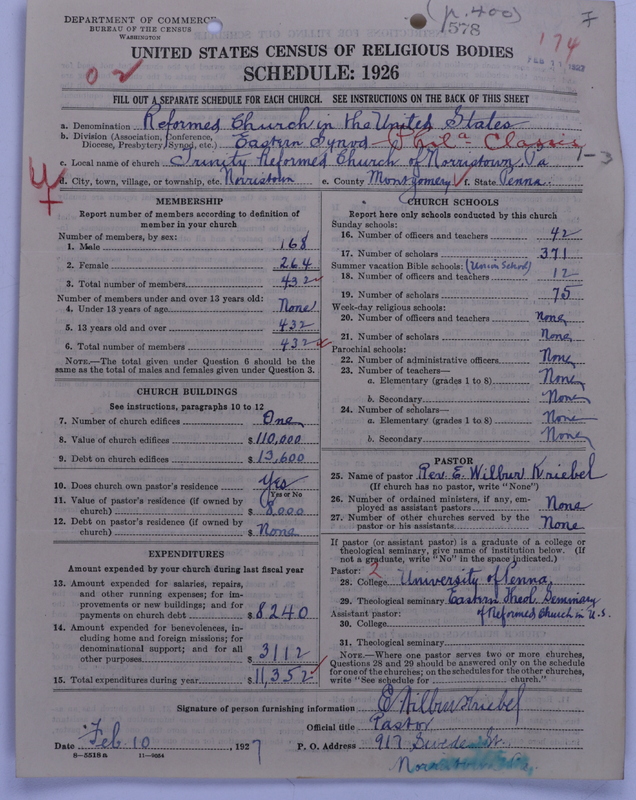 (p.400)
578
F
DEPARTMENT OF COMMERCE
BUREAU OF THE CENSUS
WASHINGTON
174
FEB 11 1927
UNITED STATES CENSUS OF RELIGIOUS BODIES
SCHEDULE: 1926
02
FILL OUT A SEPARATE SCHEDULE FOR EACH CHURCH. SEE INSTRUCTIONS ON THE BACK OF THIS SHEET
a. Denomination Reformed Church in the United States
b. Division (Association, Conference, Diocese, Presbytery, Synod, etc.) Eastern Synod Phila Classis
c. Local name of church Trinity Reformed Church of Norristown, Pa 1-3
d. City, town, village, or township, etc. Norristown e. County Montgomery f. State Penna.
MEMBERSHIP
Report number of members according to definition of
member in your church
Number of members, by sex:
1. Male 168
2. Female 264
3. Total number of members 432
Number of members under and over 13 years old:
4. Under 13 years of age None
5. 13 years old and over 432
6. Total number of members 432
NOTE.—The total given under Question 6 should be
same as the total of males and females given under Question 3.
CHURCH BUILDINGS
See instructions, paragraphs 10 to 12
7. Number of church edifices One
8. Value of church edifices $110,000
9. Debt on church edifices $13,600
10. Does church own pastor's residence Yes
Yes or No
11. Value of pastor's residence (if owned by
church) $8,000
12. Debt on pastor's residence (if owned by
church) $None
EXPENDITURES
Amount expended by your church during last fiscal year
13. Amount expended for salaries, repairs,
and other running expenses; for im-
provements or new buildings; and for
payments on church debt $8240
14. Amount expended for benevolences, in-
cluding home and foreign missions; for
denominational support; and for all
other purposes $3112
15. Total expenditures during year $11,352
CHURCH SCHOOLS
Report here only schools conducted by this church
Sunday schools:
16. Number of officers and teachers 42
17. Number of scholars 371
Summer vacation Bible schools: (Union School)
18. Number of officers and teachers 12
19. Number of scholars 75
Week-day religious schools:
20. Number of officers and teachers None
21. Number of scholars None
Parochial schools:
22. Number of administrative officers None
23. Number of teachers—
a. Elementary (grades 1 to 8) None
b. Secondary None
24. Number of scholars—
a. Elementary (grades 1 to 8) None
b. Secondary None
PASTOR
25. Name of pastor Rev. E. Wilbur Kriebel
(If church has no pastor, write "None")
26. Number of ordained ministers, if any, em-
ployed as assistant pastors None
27. Number of other churches served by the
pastor or his assistants None
If pastor (or assistant pastor) is a graduate of a college or
theological seminary, give name of institution below. (If
not a graduate, write "No" in the space indicated.)
Pastor: 2
28. College University of Penna.
29. Theological seminary Eastern Theol. Seminary
Assistant pastor: of Reformed Church in U.S.
30. College
31. Theological seminary
NOTE.—Where one pastor serves two or more churches,
Questions 28 and 29 should be answered only on the schedule
for one of the churches; on the schedules for the other churches,
write "See schedule for church."
Signature of person furnishing information E. Wilbur Kriebel
Official title Pastor
Date Feb 10 1927 P. O. Address 917 Swede St.
8—5518a 11—9054